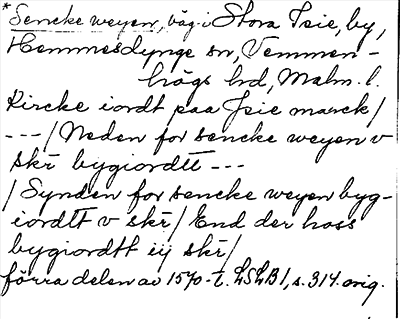 *Sencke weyen, väg i Stora Isie, by,
Hemmesdynge sn, Vemmen-
högs hd, Malm. l.
Kircke iordt paa Isie marck/
---/ Neden for sencke weyen v
skr bygiordtt ---
/ Synden for sencke weyen byg-
iordtt v skr/ End der hoss
bygiordtt iij skr/
förra delen av 1570-t. LSLB1, s. 314. orig.